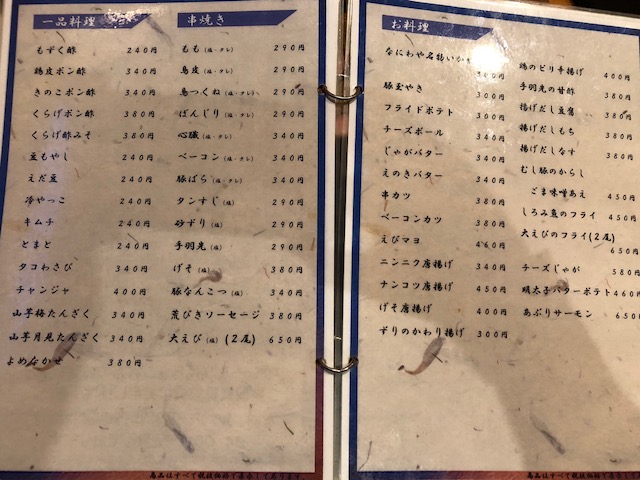 一品料理
もずく酢 240円
鶏皮ポン酢 340円
きのこポン酢 340円
くらげポン酢 380円
くらげ酢みそ 380円
豆もやし 240円
えだ豆 240円
冷やっこ 240円
キムチ 240円
とまと 240円
タコわさび 340円
チャンジャ 400円
山芋梅たんざく 340円
山芋月見たんざく 340円
よめなかせ 380円
串焼き
もも(塩・タレ) 290円
鳥皮(塩・タレ) 290円
鳥つくね(塩・タレ) 290円
ぼんじり(塩・タレ) 290円
心臓(塩・タレ) 340円
ベーコン(塩・タレ) 340円
豚ばら(塩・タレ) 340円
タンすじ(塩) 290円
砂ずり(塩) 290円
手羽先(塩) 290円
げそ(塩) 380円
豚なんこつ(塩) 340円
荒びきソーセージ 380円
大えび(塩)(2尾) 650円
お料理
なにわや名物いかやき 300円
豚玉やき 300円
フライドポテト 300円
チーズボール 340円
じゃがバター 340円
えのきバター 340円
串カツ 380円
ベーコンカツ 380円
えびマヨ 460円
ニンニク唐揚げ 340円
ナンコツ唐揚げ 450円
げそ唐揚げ 400円
ずりのかわり揚げ 300円
鶏のピリ辛揚げ 400円
手羽先の甘酢 380円
揚げだし豆腐 380円
揚げだしもち 380円
揚げだしなす 380円
むし豚のからし
ごま味噌あえ 450円
しろみ魚のフライ 450円
大えびのフライ(2尾)
650円
チーズじゃが 580円
明太子バターポテト 460円
あぶりサーモン 650円
商品はすべて税抜価格で表示しております